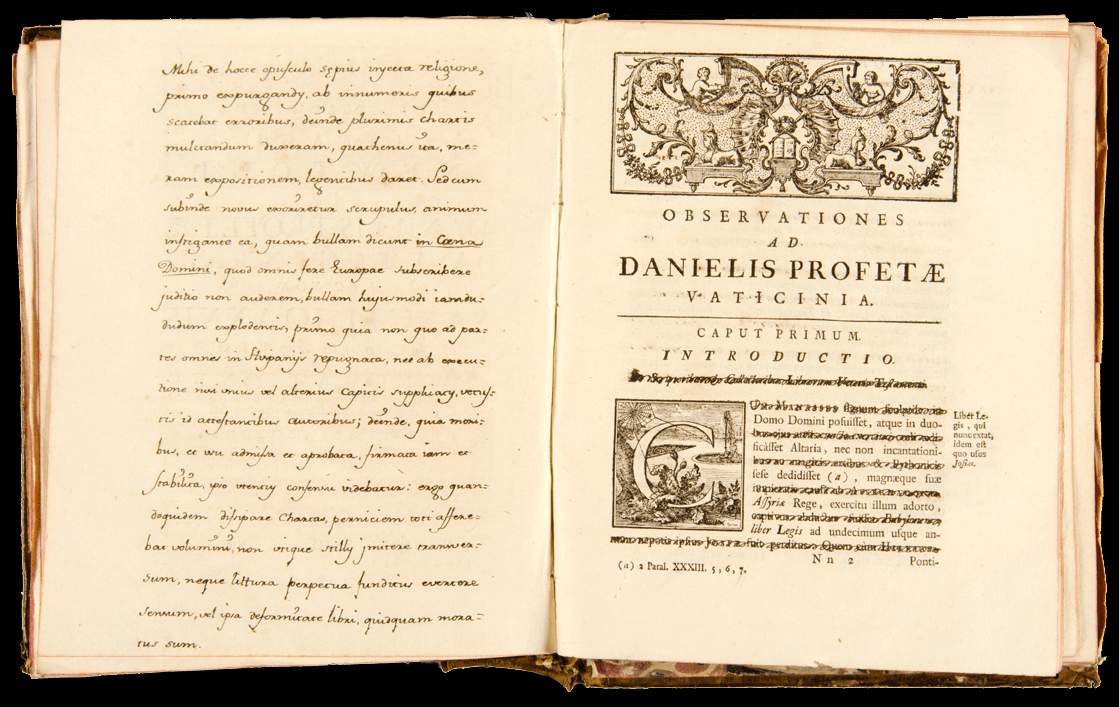 Mihi de hocce opusculo sępius injecta religione,
primo expurgandy, ab innumeris quibus
scatebat erroribus, deinde plurimis chartis
mulctandum duxeram, quathenus ita, me=
ram expositionem, legentibus daret. Sed cum
subinde novus exoriretur scrupulus, animum
instigante ea, quam bullam dicunt in Cœna
Domini, quod omnis fere Europae subscribere
juditio non auderem, bullam hujusmodi iamdu=
dudum explodentis, primo quia non quo ad par=
tes omnes in Hispanijs repugnata, nec ab execu=
tione nisi unius vel alterius Capitis
tis id attestantibus autoribus; deinde, quia mori=
bus, et usu admissa et aprobata, firmata iam et
stabilita, ipso utentiu consensu videbatur: ergo quan=
doquidem dissipare Chartas, perniciem toti affere=
bat volumini, non utique stilly jmitere transver=
sum, neque littura perpetua funditus evertere
sensum, vel ipsa deformitate libri, quidquam mora=
tus sum.
OBSERVATIONES
AD
DANIELIS PROFETÆ
VATICINIA.
CAPUT PRIMUM.
INTRODUCTIO.
Domo Domini posuisset, atque in duo-
ficâsset Altaria, nec non incantationi-
sese dedidisset (a), magnæque suæ
Assyriæ Rege, exercitu illum adorto,
liber Legis ad undecimum usque an-
Liber Le-
gis, qui
nunc extat,
idem est
quo usus
Josias.
Nn 2 Ponti-
(a) 2 Paral. XXXIII. 5, 6, 7.